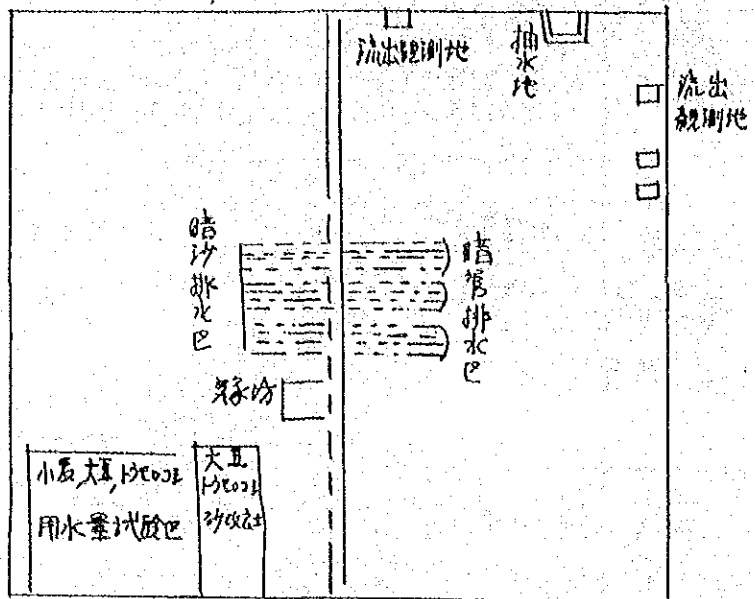 流出観測地
抽水地
流出
観測地
暗沙排水区
暗管排水区
小麦,大豆,トウモロコシ
用水量試験区
大豆
トウモロコシ